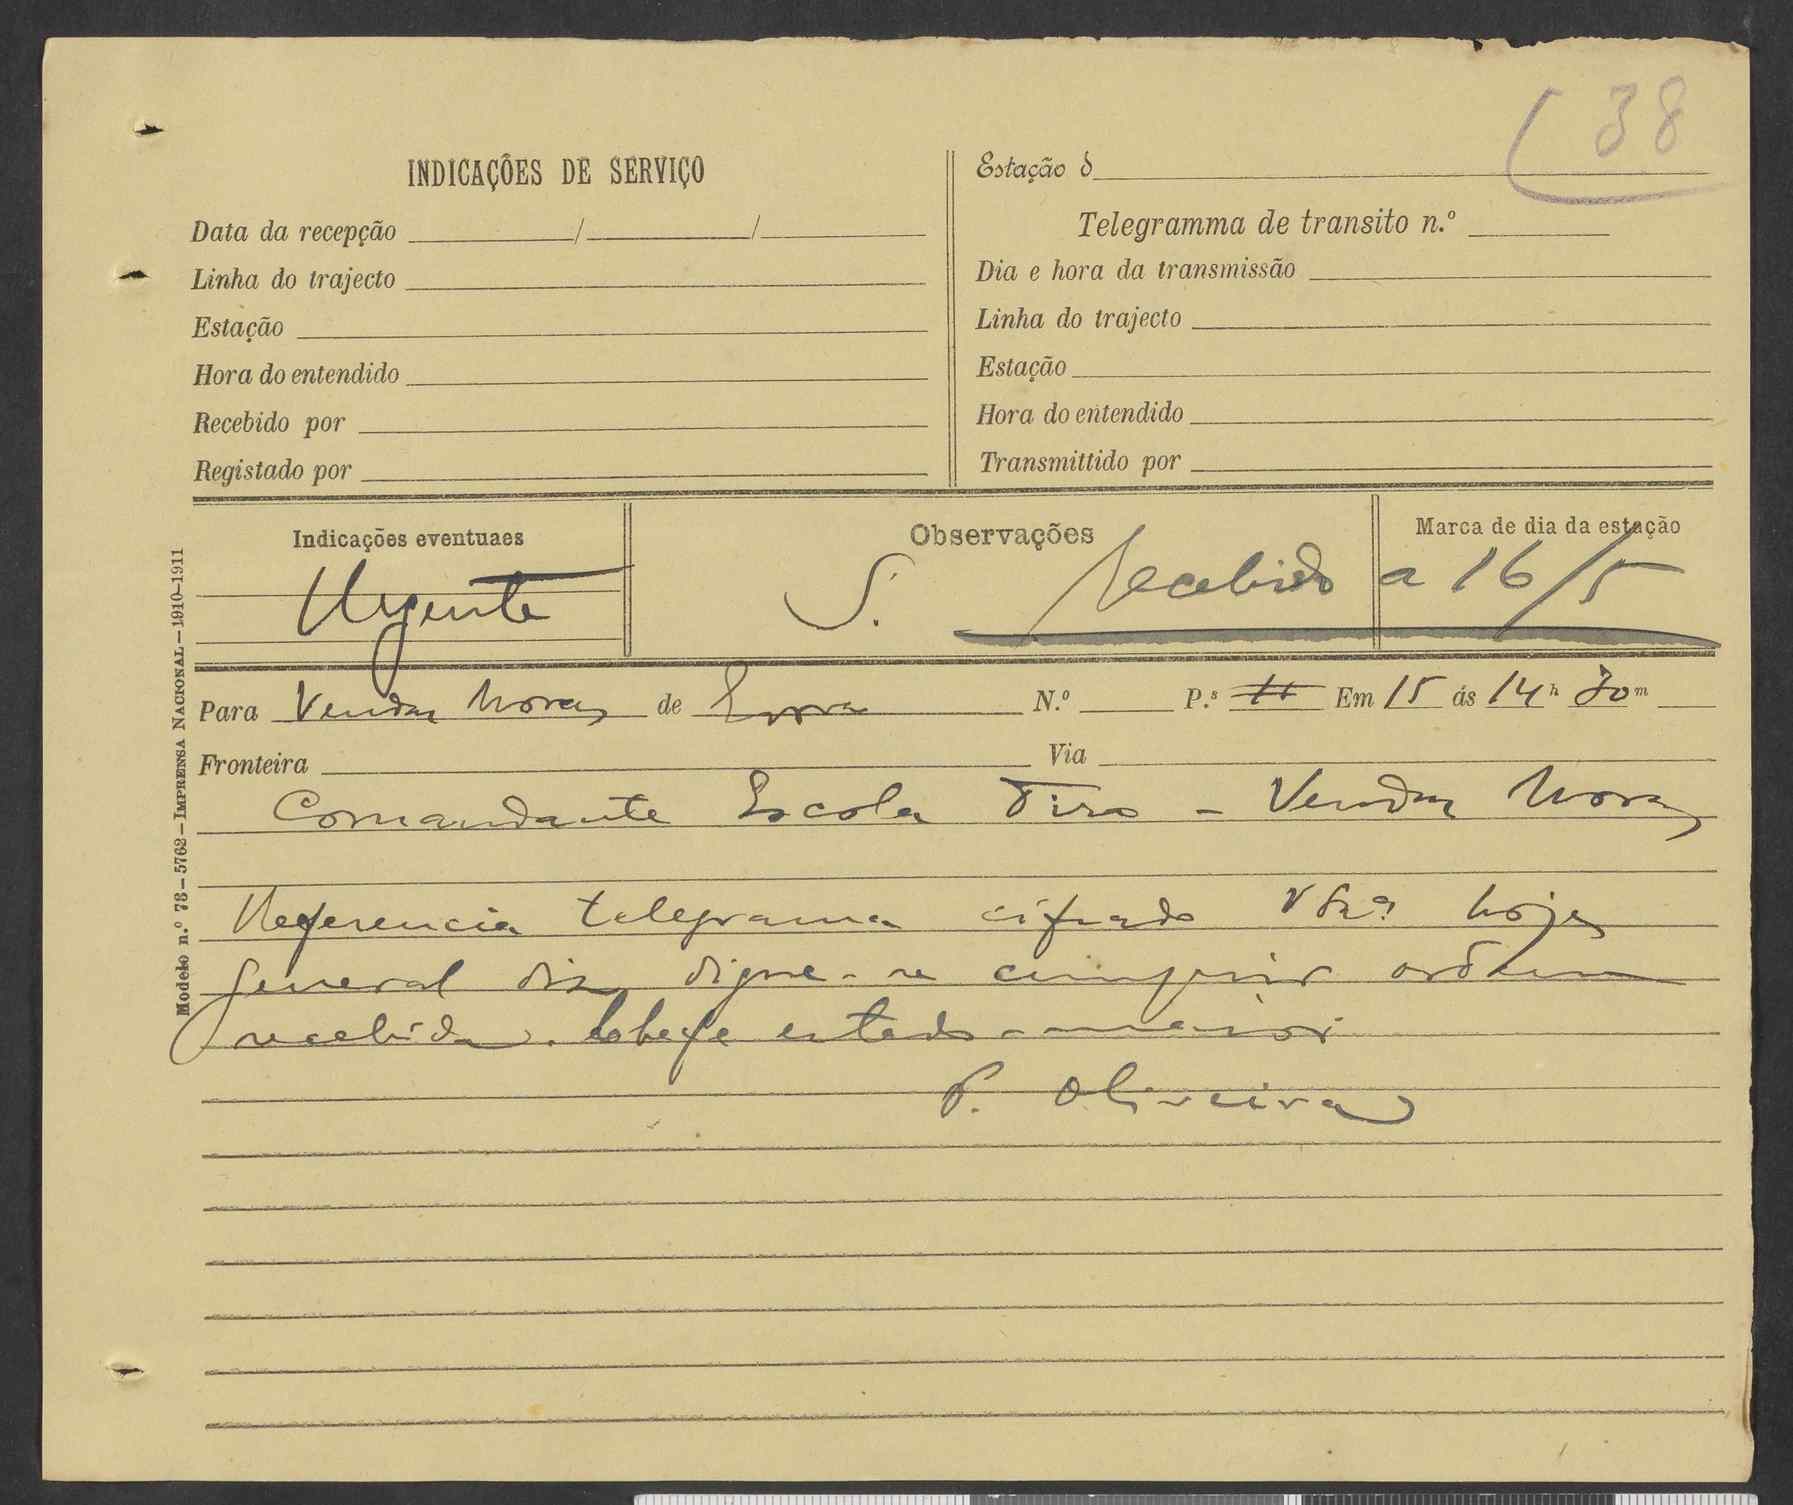 38
INDICAÇÕES DE SERVIÇO
Data da recepção / /
Linha do trajecto
Estação
Hora do entendido
Recebido por
Registado por
Estação d
Telegramma de transito n.º
Dia e hora da transmissão
Linha do trajecto
Estação
Hora do entendido
Transmittido por
Indicações eventuaes
Urgente
Observações
S.
Marca de dia da estação
Recebido a 16/5
Para Vendas Novas de Evora N.º P.s Em 15 ás 14 h 30 m
Fronteira Via
Comandante Escola Tiro - Vendas Novas
Referencia telegrama cifrado hoje
general diz digne-se cumprir ordem
recebida. Chefe estado-maior
P. Oliveira
Modelo n.º 73-5762-IMPRENSA NACIONAL-1910-1911